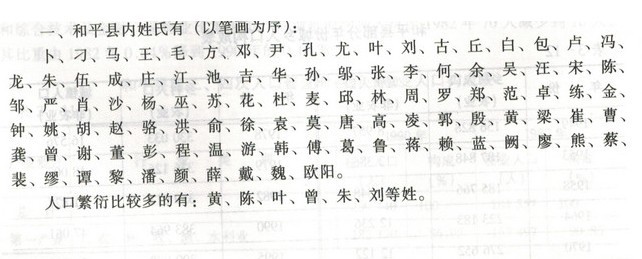 一、和平县内姓氏有（以笔画为序）：
卜、刁、马、王、毛、方、邓、尹、孔、尤、叶、刘、古、丘、白、包、卢、冯、
龙、朱、伍、成、庄、江、池、吉、华、孙、邬、张、李、何、余、吴、汪、宋、陈、
邹、严、肖、沙、杨、巫、苏、花、杜、麦、邱、林、周、罗、郑、范、卓、练、金、
钟、姚、胡、赵、骆、洪、俞、徐、袁、莫、唐、高、凌、郭、殷、黄、梁、崔、曹、
龚、曾、谢、董、彭、程、温、游、韩、傅、葛、鲁、蒋、赖、蓝、阙、廖、熊、蔡、
裴、缪、谭、黎、潘、颜、薛、戴、魏、欧阳。
人口繁衍比较多的有：黄、陈、叶、曾、朱、刘等姓。